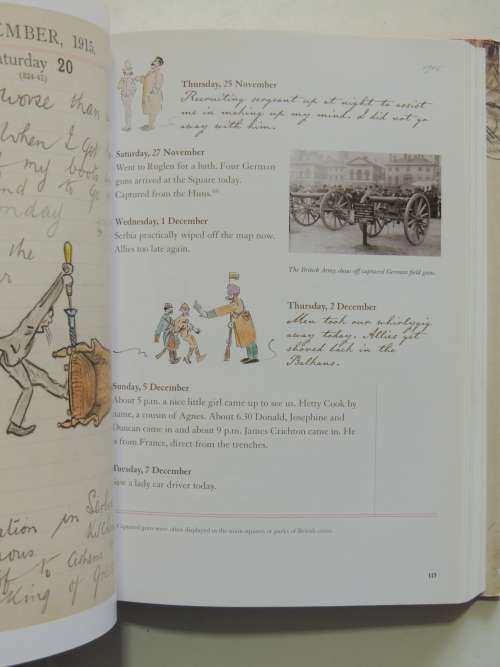 EMBER, 1915.
aturday 20
(324-41)
worse than
When I got
my boots
nd to
onday
the
1915
Thursday, 25 November
Recruiting sergeant up at night to assist
me in making up my mind. I did not go
away with him.
Saturday, 27 November
Went to Ruglen for a bath. Four German
guns arrived at the Square today.
Captured from the Huns.
Wednesday, 1 December
Serbia practically wiped off the map now.
Allies too late again.
The British Army show off captured German field guns.
Thursday, 2 December
Men took our whirligig
away today. Allies get
shoved back in the
Balkans.
Sunday, 5 December
About 5 p.m. a nice little girl came up to see us. Hetty Cook by
name, a cousin of Agnes. About 6.30 Donald, Josephine and
Duncan came in and about 9 p.m. James Crichton came in. He
is from France, direct from the trenches.
Tuesday, 7 December
Saw a lady car driver today.
Captured guns were often displayed in the main squares or parks of British cities.
ation in
ous.
to Athens
King of
113